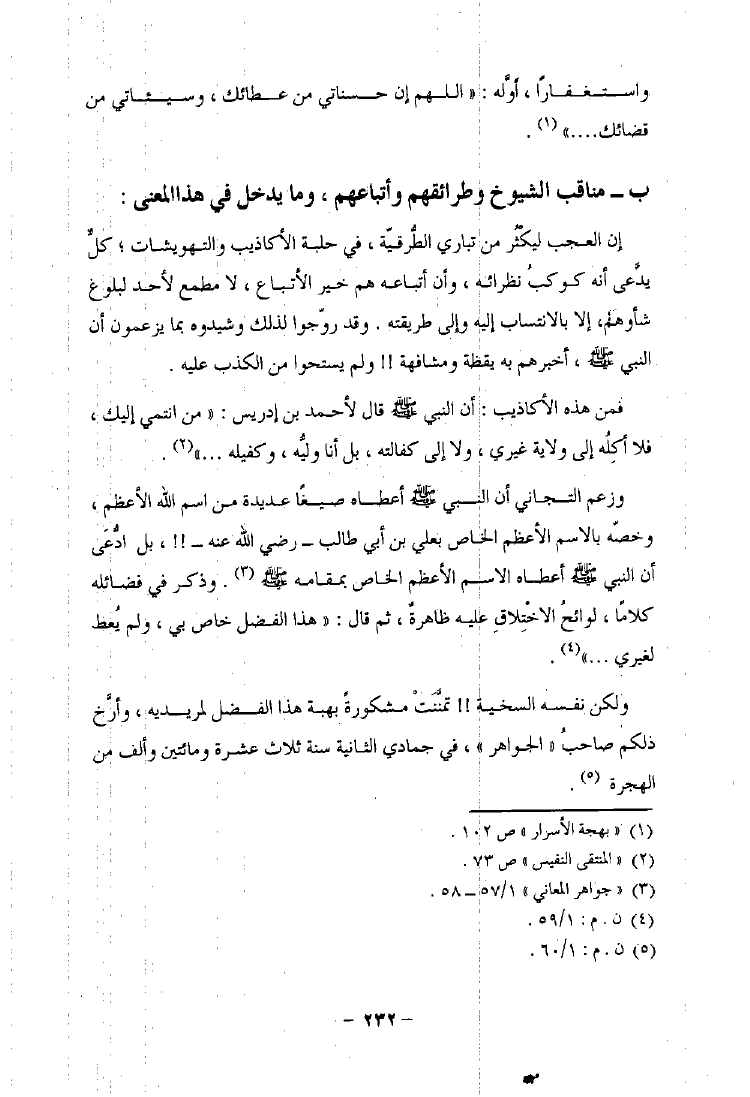 واستغفارًا ، أوَّله : « اللهم إن حسناتي من عطائك ، وسيئاتي من
قضائك....» (١) .
ب ــ مناقب الشيوخ وطرائقهم وأتباعهم ، وما يدخل في هذا المعنى :
إن العجب ليكثُر من تباري الطُّرقيّة ، في حلبة الأكاذيب والتهويشات ؛ كلٌّ
يدَّعى أنه كوكبُ نظرائه ، وأن أتباعه هم خير الأتباع ، لا مطمع لأحد لبلوغ
شأوهم، إلا بالانتساب إليه وإلى طريقته . وقد روّجوا لذلك وشيدوه بما يزعمون أن
النبي ﷺ ، أخبرهم به يقظة ومشافهة !! ولم يستحوا من الكذب عليه .
فمن هذه الأكاذيب : أن النبي ﷺ قال لأحمد بن إدريس : « من انتمي إليك ،
فلا أكِلُه إلى ولاية غيري ، ولا إلى كفالته ، بل أنا وليُّه ، وكفيله ...»(٢) .
وزعم التجاني أن النبي ﷺ أعطاه صيغًا عديدة من اسم الله الأعظم ،
وخصّه بالاسم الأعظم الخاص بعلي بن أبي طالب ــ رضي الله عنه ــ !! ، بل ادُّعَى
أن النبي ﷺ أعطاه الاسم الأعظم الخاص بمقامه ﷺ (٣) . وذكر في فضائله
كلامًا ، لوائحُ الاخْتلاقِ عليه ظاهرةٌ ، ثم قال : « هذا الفضل خاص بي ، ولم يُعط
لغيري ...»(٤) .
ولكن نفسه السخية !! تمنَّنَتْ مشكورةً بهبة هذا الفضل لمريديه ، وأرَّخ
ذلكم صاحبُ « الجواهر » ، في جمادي الثانية سنة ثلاث عشرة ومائتين وألف من
الهجرة (٥) .
(١) « بهجة الأسرار » ص ١٠٢ .
(٢) « المنتقى النفيس » ص ٧٣ .
(٣) « جواهر المعاني » ٥٧/١ ــ ٥٨ .
(٤) ن . م : ٥٩/١ .
(٥) ن . م : ٦٠/١ .
– ٢٣٢ –